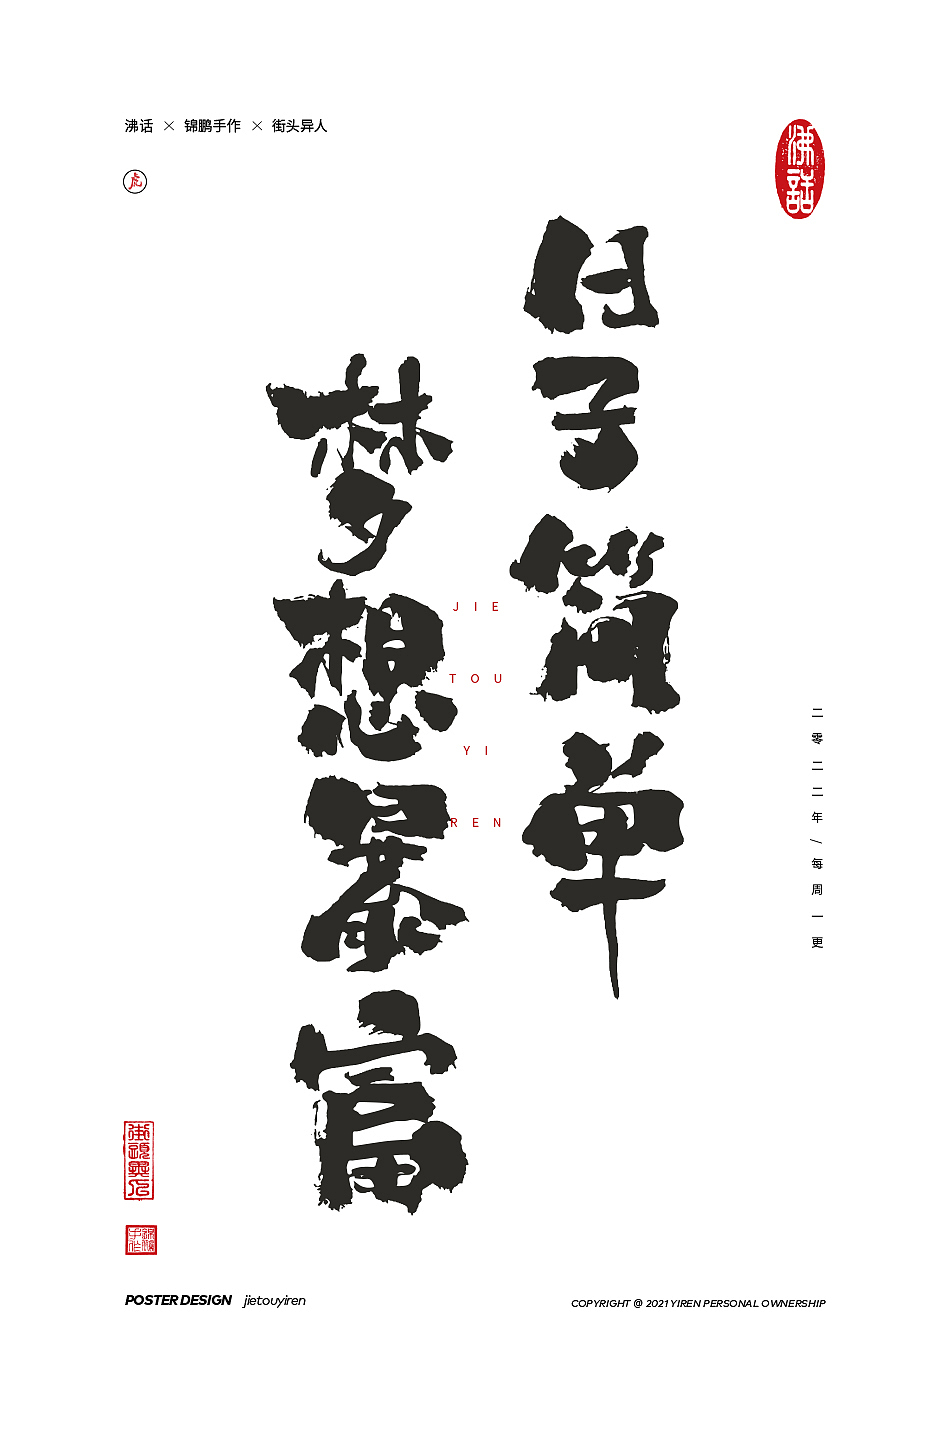 沸话 × 锦鹏手作 × 街头异人
虎
沸話
日子简单
梦想暴富
JIE
TOU
YI
REN
二零二二年/每周一更
街頭異人
POSTER DESIGN jietouyiren
COPYRIGHT @ 2021 YIREN PERSONAL OWNERSHIP